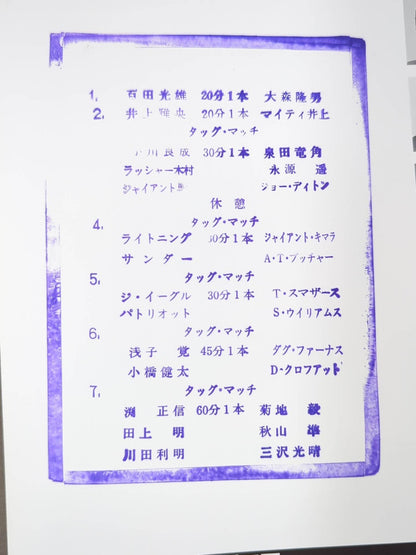 1. 百田光雄 20分1本 大森隆男
2. 井上雅央 20分1本 マイティ井上
タッグ・マッチ
川良成 30分1本 泉田竜角
ラッシャー木村 永源 遥
ジャイアント ジョー・ディトン
休憩
4. タッグ・マッチ
ライトニング 30分1本 ジャイアント・キマラ
サンダー A・T・ブッチャー
5. タッグ・マッチ
ジ・イーグル 30分1本 T・スマザース
パトリオット S・ウイリアムス
6. タッグ・マッチ
浅子 覚 45分1本 ダグ・ファーナス
小橋健太 D・クロファット
7. タッグ・マッチ
渕 正信 60分1本 菊地 毅
田上 明 秋山 準
川田利明 三沢光晴